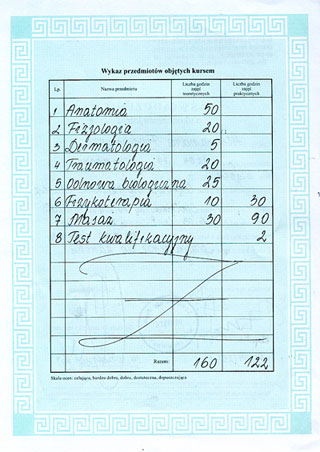 Wykaz przedmiotów objętych kursem
Lp. Nazwa przedmiotu Liczba godzin zajęć teoretycznych Liczba godzin zajęć praktycznych
1 Anatomia 50
2 Fizjologia 20
3 Dermatologia 5
4 Traumatologia 20
5 Odnowa biologiczna 25
6 Fizykoterapia 10 30
7 Masaż 30 90
8 Test kwalifikacyjny 2
Razem: 160 122
Skala ocen: celująca, bardzo dobra, dobra, dostateczna, dopuszczająca